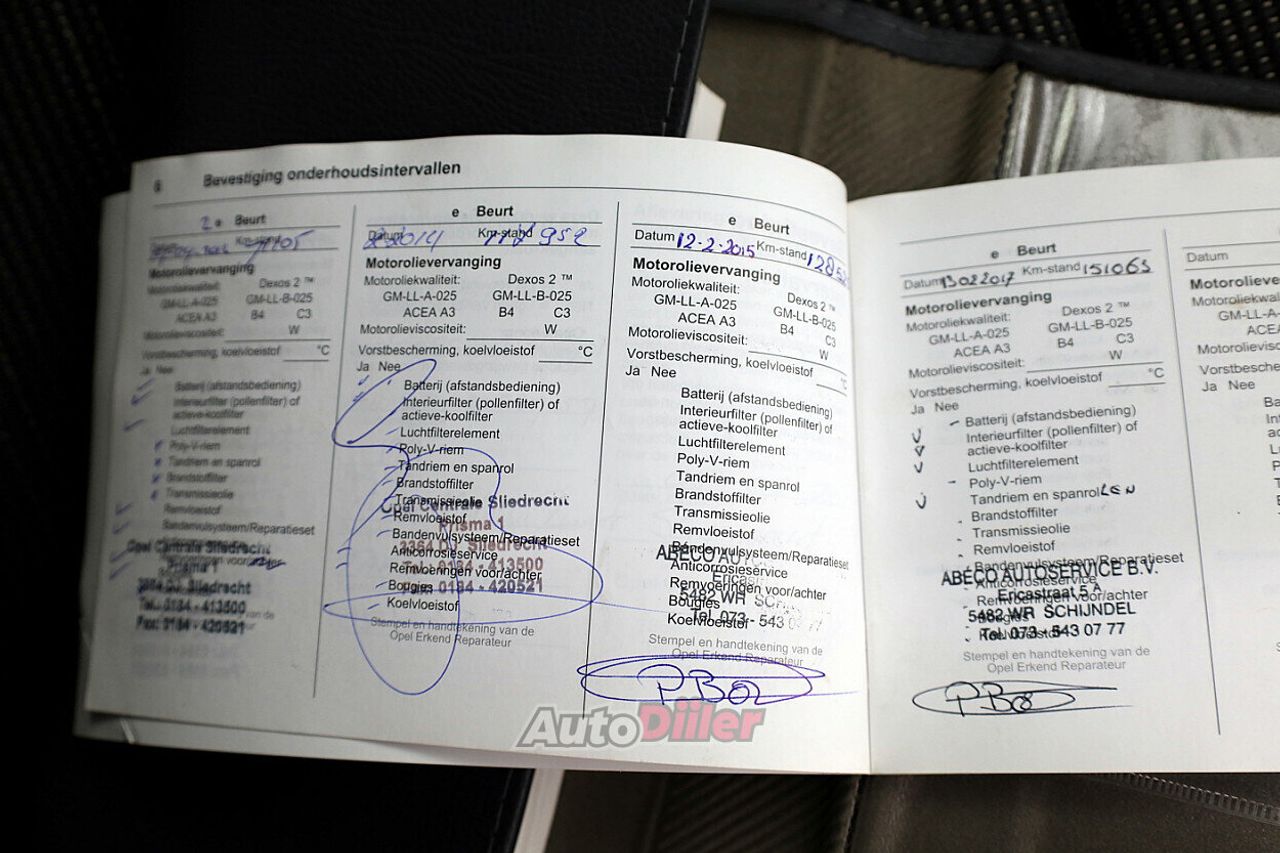 6 Bevestiging onderhoudsintervallen
2 e Beurt
Datum Km-stand
Motorolievervanging
Motoroliekwaliteit: Dexos 2 ™
GM-LL-A-025 GM-LL-B-025
ACEA A3 B4 C3
Motorolieviscositeit: W
Vorstbescherming, koelvloeistof °C
Ja Nee
Batterij (afstandsbediening)
Interieurfilter (pollenfilter) of
actieve-koolfilter
Luchtfilterelement
Poly-V-riem
Tandriem en spanrol
Brandstoffilter
Transmissieolie
Remvloeistof
Bandenvulsysteem/Reparatieset
Opel Centrale Sliedrecht
Prisma 1
3364 DJ Sliedrecht
Tel. 0184 - 413500
Fax: 0184 - 420521
e Beurt
Datum 2014 Km-stand
Motorolievervanging
Motoroliekwaliteit: Dexos 2 ™
GM-LL-A-025 GM-LL-B-025
ACEA A3 B4 C3
Motorolieviscositeit: W
Vorstbescherming, koelvloeistof °C
Ja Nee
Batterij (afstandsbediening)
Interieurfilter (pollenfilter) of
actieve-koolfilter
Luchtfilterelement
Poly-V-riem
Tandriem en spanrol
Brandstoffilter
Transmissieolie
Opel Centrale Sliedrecht
Remvloeistof
Prisma 1
Bandenvulsysteem/Reparatieset
3364 DJ Sliedrecht
Anticorrosieservice
0184 - 413500
Remvoeringen voor/achter
Bougies
0184 - 420521
Koelvloeistof
Stempel en handtekening van de
Opel Erkend Reparateur
e Beurt
Datum 12-2-2015 Km-stand
Motorolievervanging
Motoroliekwaliteit: Dexos 2 ™
GM-LL-A-025 GM-LL-B-025
ACEA A3 B4 C3
Motorolieviscositeit: W
Vorstbescherming, koelvloeistof °C
Ja Nee
Batterij (afstandsbediening)
Interieurfilter (pollenfilter) of
actieve-koolfilter
Luchtfilterelement
Poly-V-riem
Tandriem en spanrol
Brandstoffilter
Transmissieolie
Remvloeistof
Bandenvulsysteem/Reparatieset
ABECO
Anticorrosieservice
Remvoeringen voor/achter
5482 WR
Bougies
Koelvloeistof
Tel. 073 - 543 77
Stempel en handtekening van de
Opel Erkend Reparateur
e Beurt
Datum 13022017 Km-stand 151065
Motorolievervanging
Motoroliekwaliteit: Dexos 2 ™
GM-LL-A-025 GM-LL-B-025
ACEA A3 B4 C3
Motorolieviscositeit: W
Vorstbescherming, koelvloeistof °C
Ja Nee
Batterij (afstandsbediening)
Interieurfilter (pollenfilter) of
actieve-koolfilter
Luchtfilterelement
Poly-V-riem
Tandriem en spanrol LEN
Brandstoffilter
Transmissieolie
Remvloeistof
Bandenvulsysteem/Reparatieset
ABECO AUTOSERVICE B.V.
Anticorrosieservice
Ericastraat 5 A
Remvoeringen voor/achter
5482 WR SCHIJNDEL
Bougies
Tel. 073 - 543 07 77
Koelvloeistof
Stempel en handtekening van de
Opel Erkend Reparateur
Datum
Ja Nee
AutoDiiler